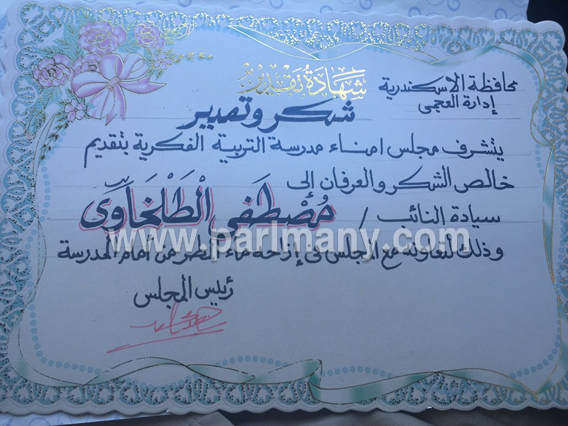 محافظة الاسكندرية
إدارة العجمى
شهادة تقدير
شكر وتقدير
يتشرف مجلس امناء مدرسة التربية الفكرية بتقديم
خالص الشكر والعرفان إلى
سيادة النائب / مصطفى الطلخاوى
www.parlmany.com
وذلك لتعاونه مع المجلس فى إزاحه ماء المطر من أمام المدرسة
رئيس المجلس